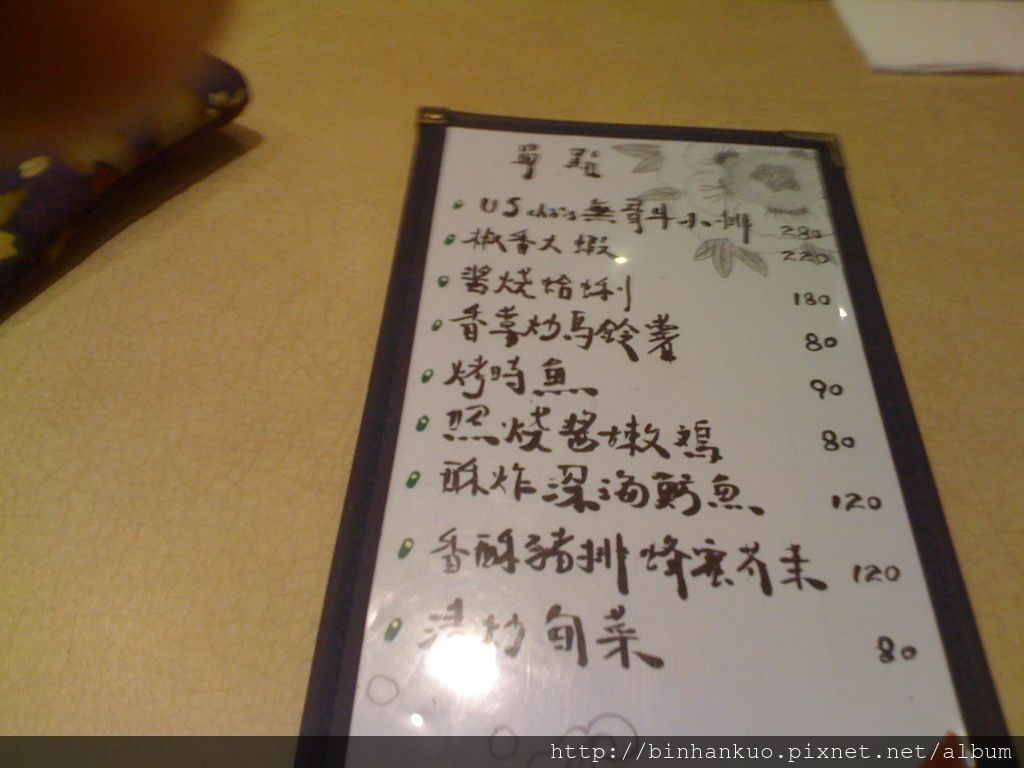 單點
US choice無骨牛小排 280
椒香大蝦 220
醬燒蛤蜊 180
香蒜炒馬鈴薯 80
烤時魚 90
照燒醬嫩鷄 80
酥炸深海鱈魚 120
香酥豬排 蜂蜜芥末 120
清炒旬菜 80
http://binhankuo.pixnet.net/album